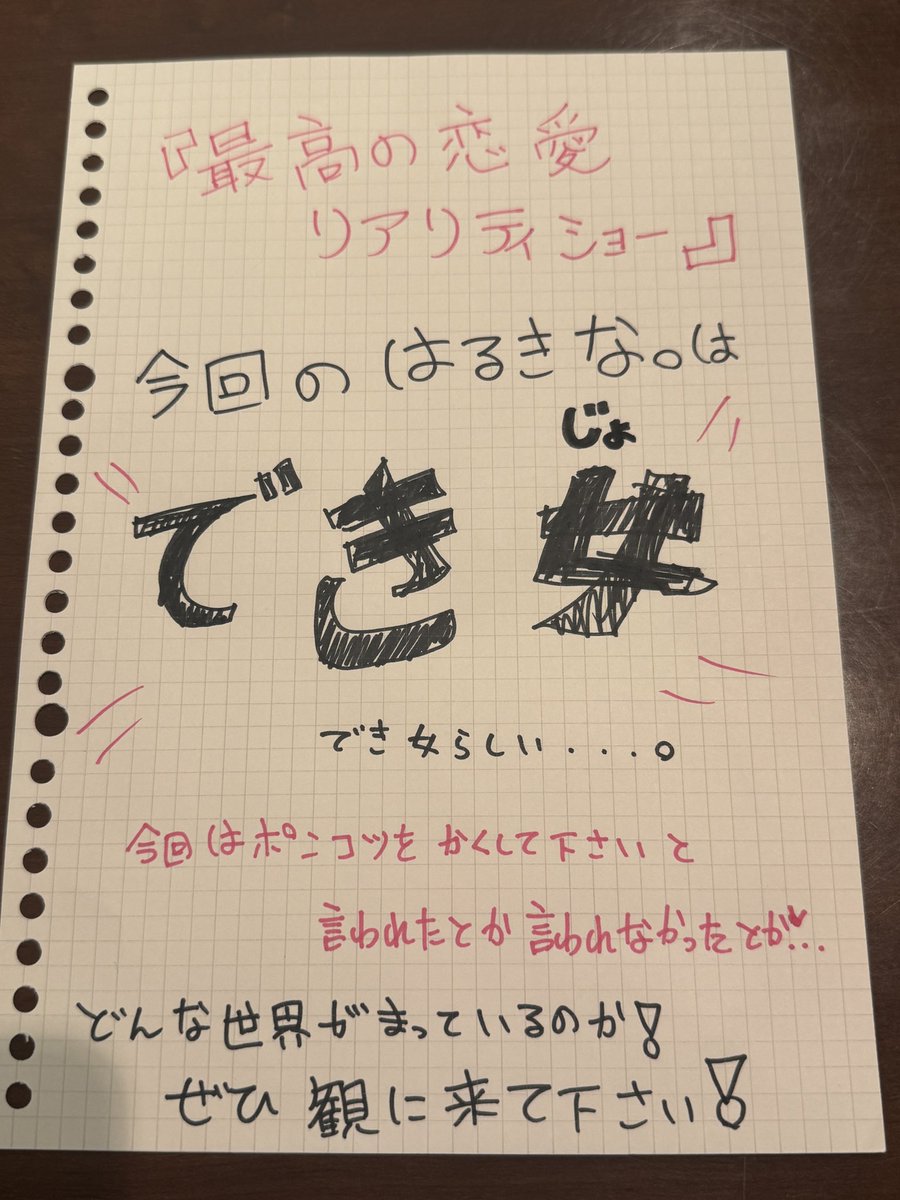 『最高の恋愛
リアリティショー』
今回のはるきな。は
じょ
でき女
でき女らしい・・・・。
今回はポンコツをかくして下さいと
言われたとか言われなかったとか…
どんな世界がまっているのか!
ぜひ観に来て下さい!